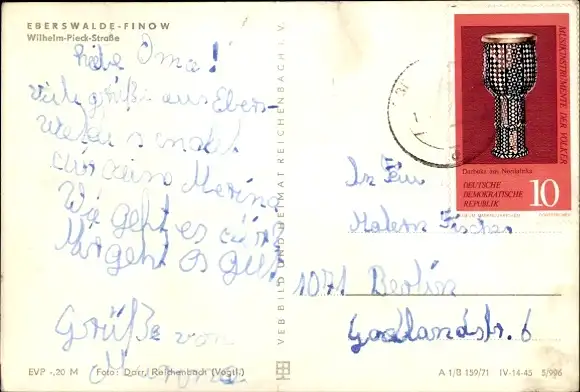 EBERSWALDE-FINOW
Wilhelm-Pieck-Straße
Liebe Oma!
viele grüße aus Ebers-
walde sendet
dir deine Merina
Wie geht es dir?
Mir geht es gut
Grüße von
EVP -,20 M Foto: Darr, Reichenbach (Vogtl.)
VEB BILD UND HEIMAT REICHENBACH I. V.
MUSIKINSTRUMENTE DER VÖLKER
Darbuka aus Nordafrika
DEUTSCHE
DEMOKRATISCHE
REPUBLIK
10
Fischer
1071 Berlin
Godlandstr. 6
A 1/B 159/71 IV-14-45 5/996